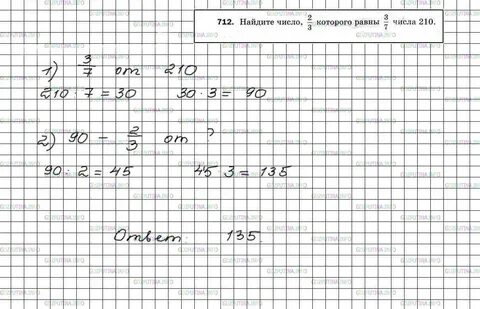 712. Найдите число, 2/3 которого равны 3/7 числа 210.
1) 3/7 от 210
210 : 7 = 30 30 · 3 = 90
2) 90 – 2/3 от ?
90 : 2 = 45 45 · 3 = 135
Ответ: 135.